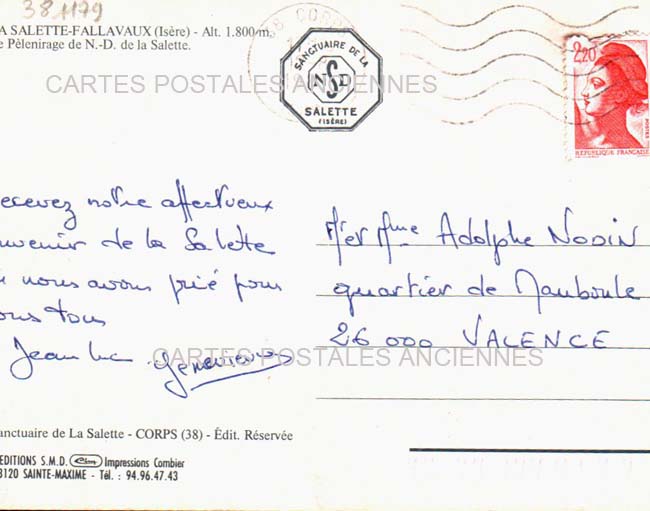 38 1179
A SALETTE-FALLAVAUX (Isère) - Alt. 1.800 m.
e Pèlenirage de N.-D. de la Salette.
38 CORPS
SANCTUAIRE DE LA
NSD
SALETTE
(ISÈRE)
2,20
POSTES
REPUBLIQUE FRANÇAISE
CARTES POSTALES ANCIENNES
ecevez notre affectueux
uvenir de la Salette
nous avons prié pour
ous tous
Jean Luc Genevieve
Mr et Mme Adolphe NODIN
quartier de Mauboule
26000 VALENCE
CARTES POSTALES ANCIENNES
anctuaire de La Salette - CORPS (38) - Édit. Réservée
EDITIONS S.M.D. Cim Impressions Combier
3120 SAINTE-MAXIME - Tél. : 94.96.47.43